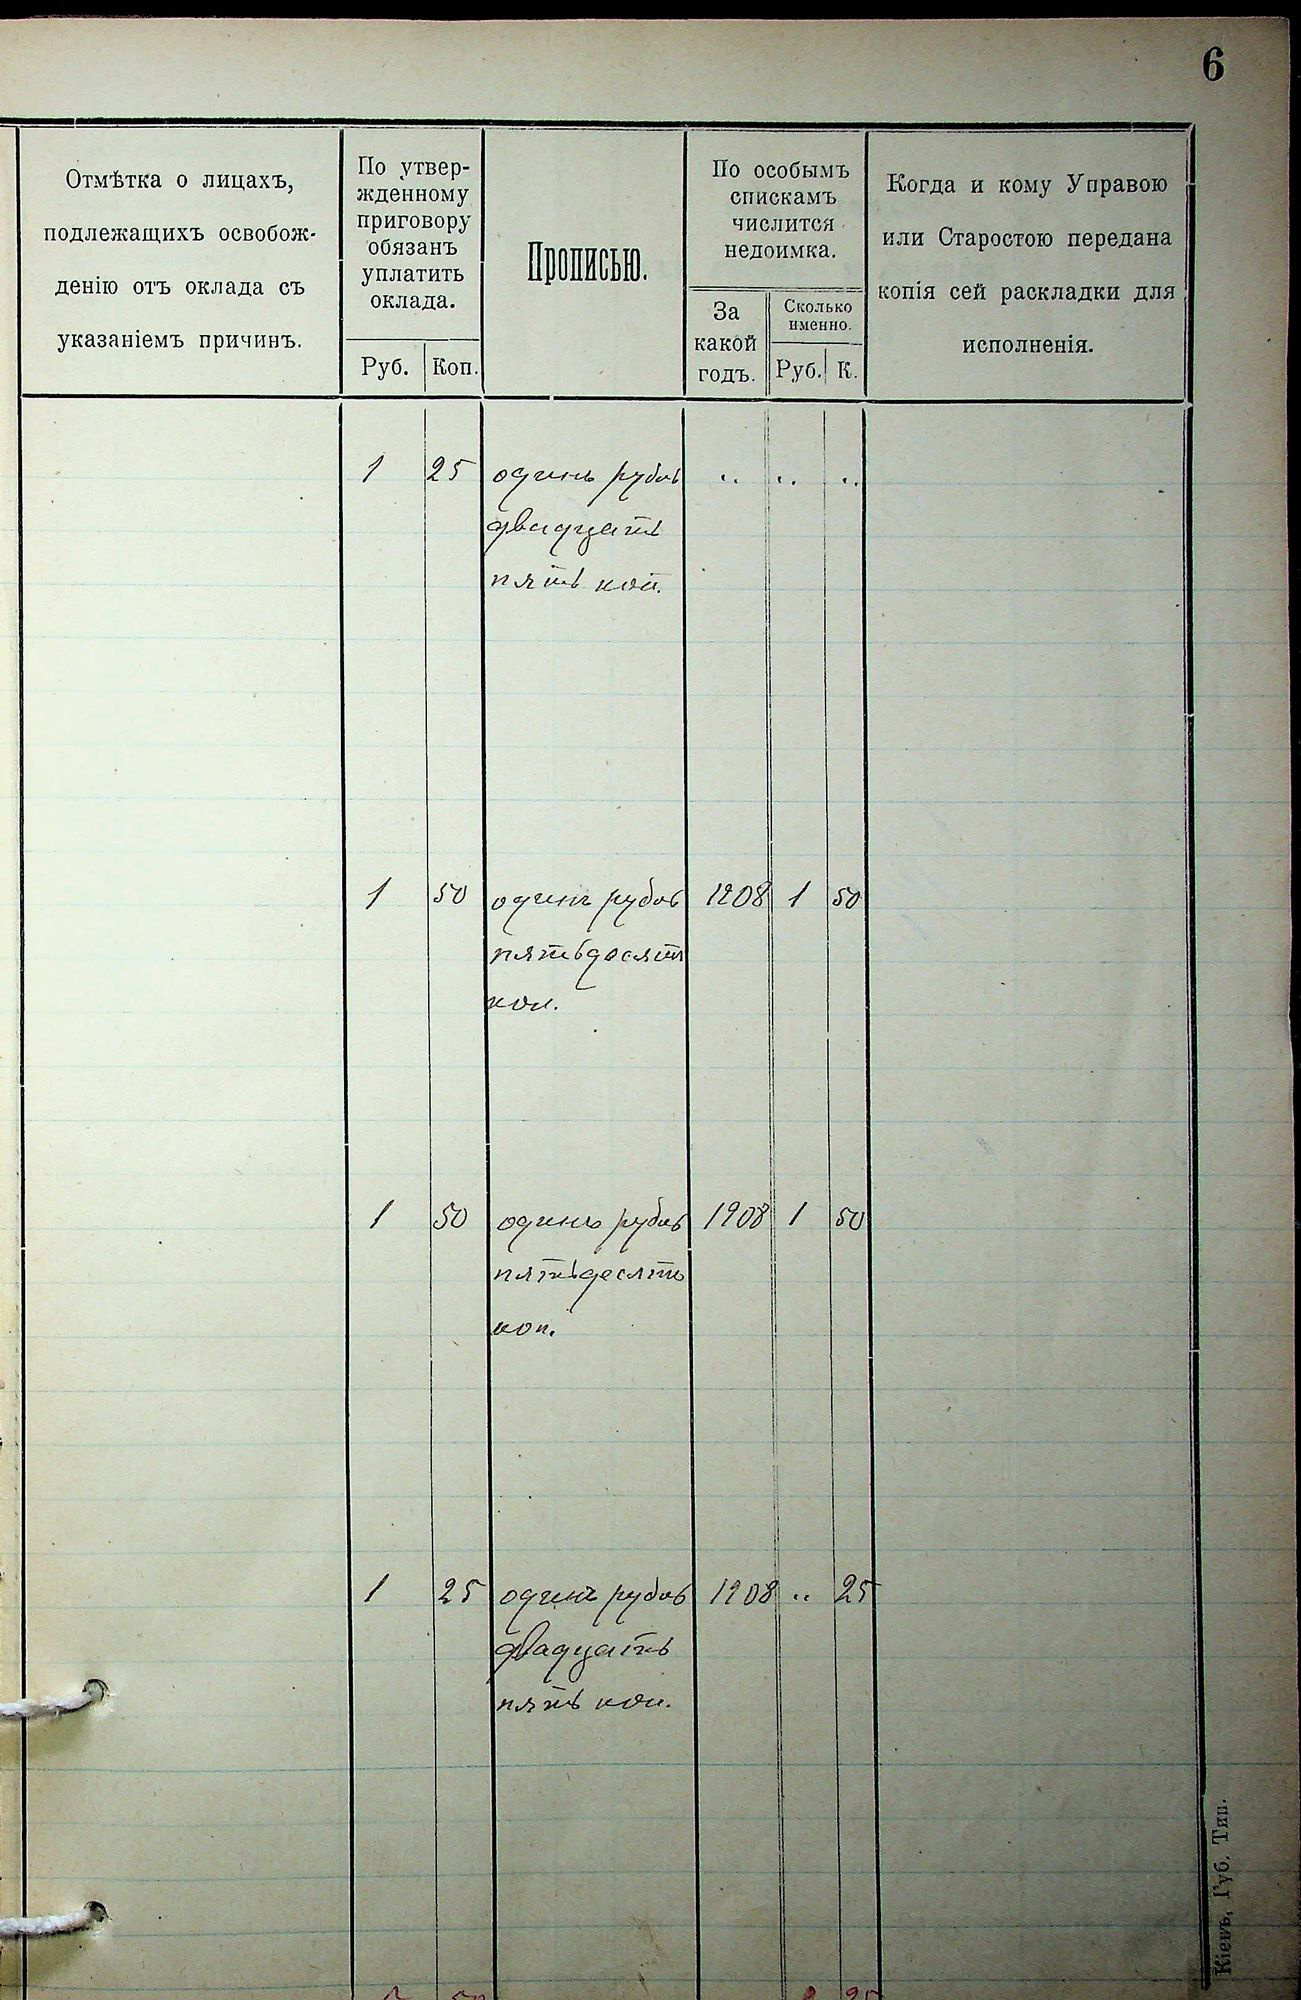 6
Отмѣтка о лицахъ,
подлежащихъ освобож-
денію отъ оклада съ
указаніемъ причинъ.
По утвер-
жденному
приговору
обязанъ
уплатить
оклада.
Руб. Коп.
Прописью.
По особымъ
спискамъ
числится
недоимка.
За
какой
годъ.
Сколько
именно.
Руб. К.
Когда и кому Управою
или Старостою передана
копія сей раскладки для
исполненія.
1 25 одинъ рубль .. .. ..
двадцать
пять коп.
1 50 одинъ рубль 1908 1 50
пятьдесятъ
коп.
1 50 одинъ рубль 1908 1 50
пятьдесятъ
коп.
1 25 одинъ рубль 1908 .. 25
двадцать
пять коп.
Кіевъ, Губ. Тип.